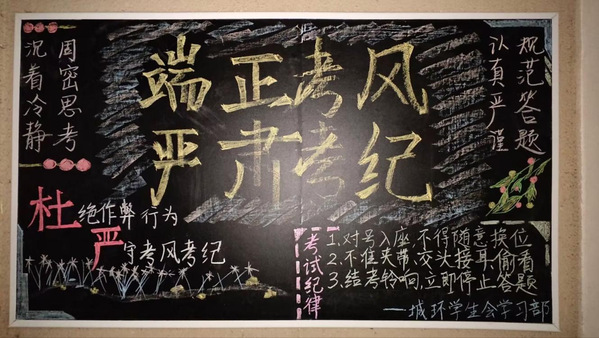 端正考风
严肃考纪
周密思考
沉着冷静
规范答题
认真严谨
杜绝作弊行为
严守考风考纪
考试纪律
1.对号入座,不得随意换位
2.不准夹带,交头接耳,偷看
3.结考铃响,立即停止答题
—城环学生会学习部